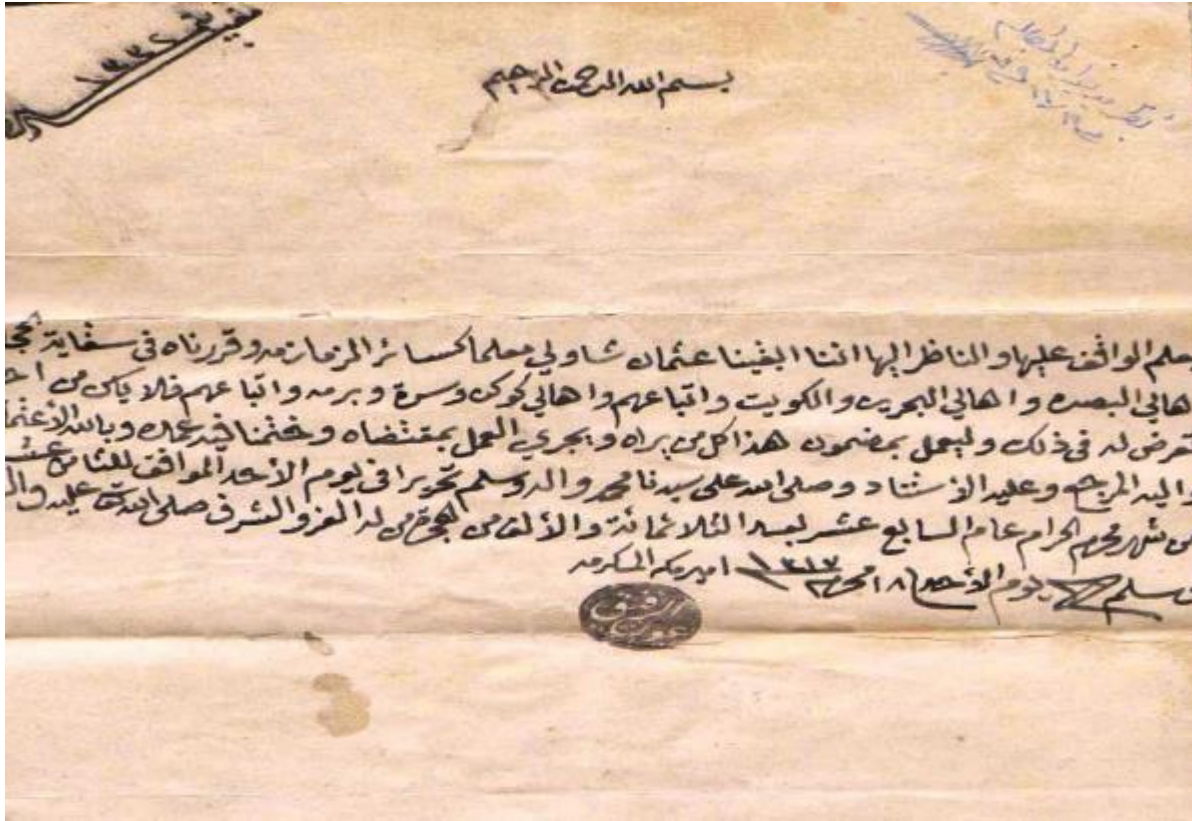 ١٣٣٢
بسم الله الرحمن الرحيم
يعلم الواقف عليها والناظر اليها اننا ابقينا عثمان شاولي معلما كسائر المزمازمه وقررناه في سقاية
اهالي البصره واهالي البحرين والكويت واتباعهم واهالي كوكن وسرة وبرمه واتباعهم فلا يكن من
يتعرض له في ذلك وليعمل بمضمون هذا كل من يراه ويجري العمل بمقتضاه وختمنا فيه عماله وبالله الأعتماد
واليه المرجع وعليه الاستناد وصلى الله على سيدنا محمد واله وسلم تحريرا في يوم الأحد الموافق للثامن عشر
من شهر محرم الحرام عام السابع عشر بعد الثلاثمائة والألف من الهجرة من له العز والشرف صلى الله عليه
وسلم يوم الأحد ١٨ محرم ١٣١٧ امير مكه المكرمه